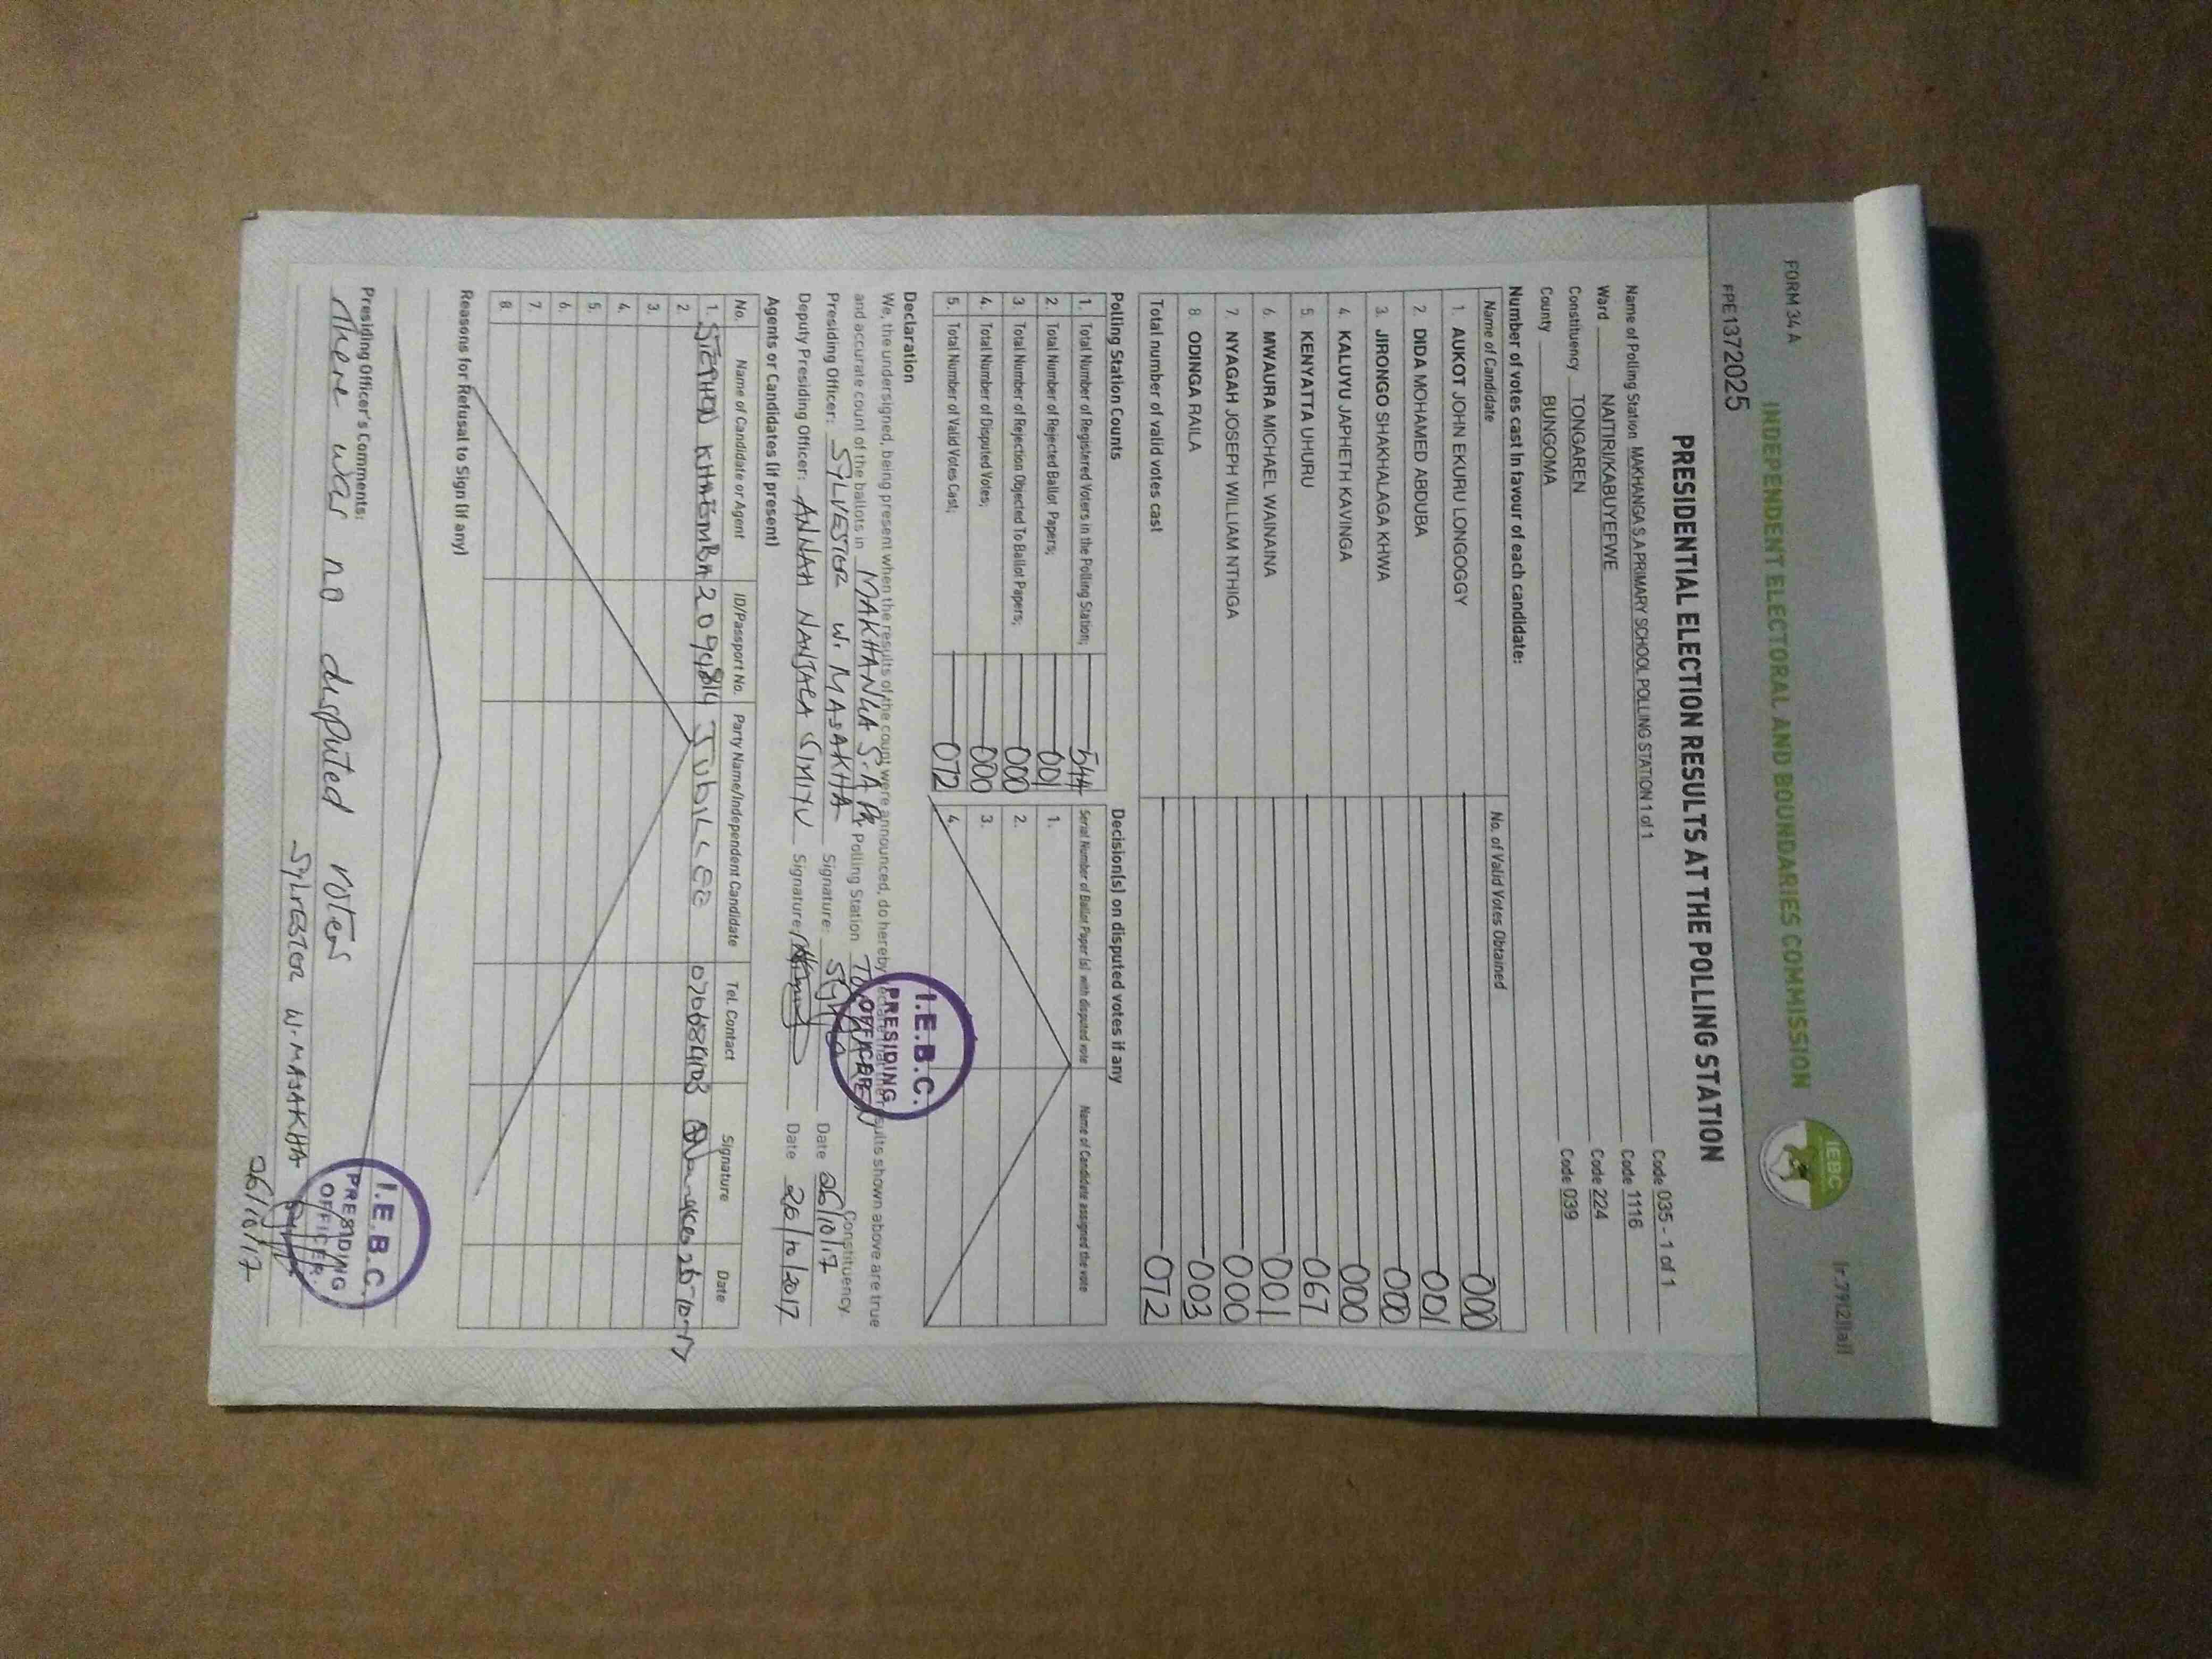 FORM 34A
INDEPENDENT ELECTORAL AND BOUNDARIES COMMISSION
IEBC
FPE1372025
PRESIDENTIAL ELECTION RESULTS AT THE POLLING STATION
Name of Polling Station MAKHANGA S A PRIMARY SCHOOL POLLING STATION 1 of 1 Code 035 - 1 of 1
Ward NAITIRI/KABUYEFWE Code 1116
Constituency TONGAREN Code 224
County BUNGOMA Code 039
Number of votes cast in favour of each candidate:
Name of Candidate No. of Valid Votes Obtained
1. AUKOT JOHN EKURU LONGOGGY 000
2. DIDA MOHAMED ABDUBA 001
3. JIRONGO SHAKHALAGA KHWA 000
4. KALUYU JAPHETH KAVINGA 000
5. KENYATTA UHURU 067
6. MWAURA MICHAEL WAINAINA 001
7. NYAGAH JOSEPH WILLIAM NTHIGA 000
8. ODINGA RAILA 003
Total number of valid votes cast 072
Polling Station Counts
1. Total Number of Registered Voters in the Polling Station; 544
2. Total Number of Rejected Ballot Papers; 001
3. Total Number of Rejection Objected To Ballot Papers; 000
4. Total Number of Disputed Votes; 000
5. Total Number of Valid Votes Cast; 072
Decision(s) on disputed votes if any
Serial Number of Ballot Paper (s) with disputed vote Name of Candidate assigned the vote
1.
2.
3.
4.
Declaration
We, the undersigned, being present when the results of the count were announced, do hereby declare that the results shown above are true
and accurate count of the ballots in MAKHANGA S.A PR Polling Station TONGAREN Constituency.
Presiding Officer: SYLVESTER W. MASAKHA Signature: Date 26/10/17
Deputy Presiding Officer: ANNAH NANJALA SIMIYU Signature: Date 26/10/2017
I.E.B.C.
PRESIDING
OFFICER
Agents or Candidates (if present)
No. Name of Candidate or Agent ID/Passport No. Party Name/Independent Candidate Tel. Contact Signature Date
1. STEPHEN JUBILEE
2.
3.
4.
5.
6.
7.
8.
Reasons for Refusal to Sign (if any)
Presiding Officer's Comments:
There was no disputed votes
SYLVESTER W. MASAKHA
26/10/17
I.E.B.C.
PRESIDING
OFFICER